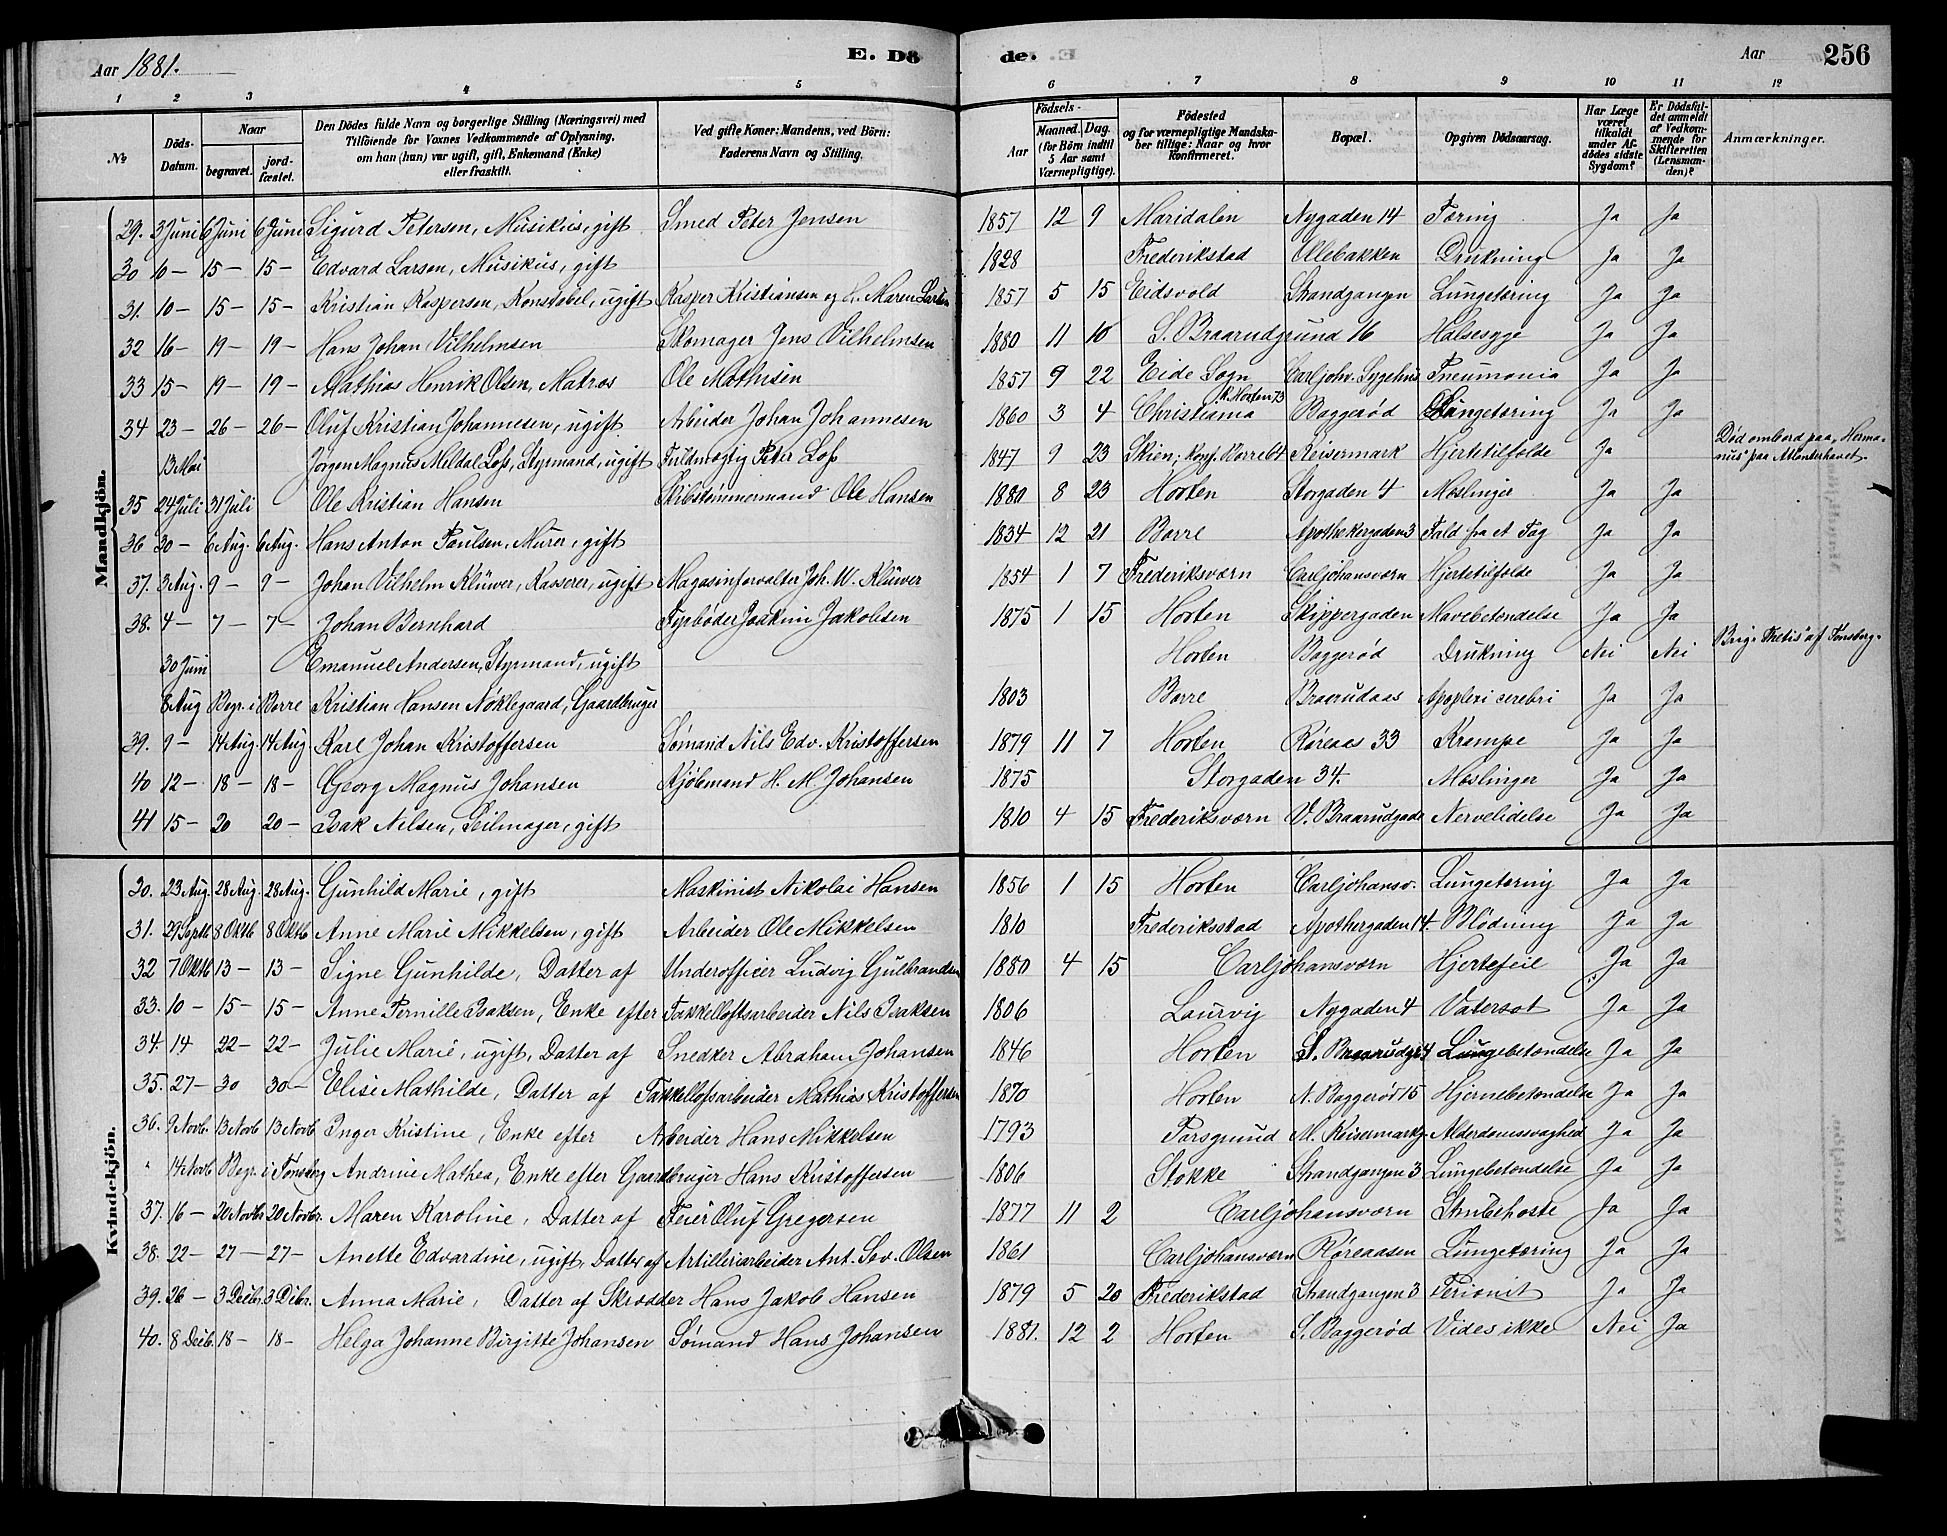 Aar 1881. E. Dö de. Aar 256
1 2 3 4 5 6 7 8 9 10 11 12
No Döds-Datum. Naar begravet. jordfæstet. Den Dödes fulde Navn og borgerlige Stilling (Næringsvei) med Tilföiende for Voxnes Vedkommende af Oplysning, om han (hun) var ugift, gift, Enkemand (Enke) eller fraskilt. Ved gifte Koner: Mandens, ved Börn: Faderens Navn og Stilling. Födsels- Aar Maaned. Dag. (for Börn indtil 5 Aar samt Værnepligtige). Födested og for værnepligtige Mandskaber tillige: Naar og hvor konfirmeret. Bopæl. Opgiven Dödsaarsag. Har Læge været tilkaldt under Afdödes sidste Sygdom? Er Dödsfaldet anmeldt af Vedkommende for Skifteretten (Lensmanden)? Anmærkninger.
Mandkjön.
29. 3 Juni 6 Juni 6 Juni Sigurd Petersen, Musikus, gift Smed Peter Jensen 1857 12 9 Maridalen Nygaden 14 Tæring Ja Ja
30 10 – 15 – 15 – Edvard Larsen, Musikus, gift 1828 Frederikstad Ollebakken Drukning Ja Ja
31. 10 – 15 – 15 – Kristian Kaspersen, Konstabel, ugift Kasper Kristiansen og H. Maren Larsen 1857 5 15 Eidsvold Strandgangen Lungetæring Ja Ja
32 16 – 19 – 19 – Hans Johan Vilhelmsen Skomager Jens Vilhelmsen 1880 11 10 S. Braarudgrund 16 Halsesyge Ja Ja
33 15 – 19 – 19 – Mathias Henrik Olsen, Matros Ole Mathisen 1857 9 22 Eide Sogn Carljohv. Sygehus Pneumonia Ja Ja
34 23 – 26 – 26 – Oluf Kristian Johannesen, ugift Arbeider Johan Johannesen 1860 3 4 Christiania k. Horten 73 Baggerød Lungetæring Ja Ja
13 Mai Jørgen Magnus Meldal Loss, Styrmand, ugift Fuldmægtig Peter Loss 1847 9 23 Skien; konf. Borre 64 Keisermark Hjertetilfælde Ja Død ombord paa „Hermanus" paa Atlanterhavet.
35 24 Juli 31 Juli Ole Kristian Hansen Skibstømmermand Ole Hansen 1880 8 23 Horten Storgaden 4 Mæslinger Ja Ja
36 30 – 6 Aug. 6 Aug. Hans Anton Paulsen, Murer, gift 1834 12 21 Borre Apothekergaden 3 Fald fra et Tag Ja Ja
37. 3 Aug. 9 – 9 – Johan Vilhelm Klüwer, Kasserer, ugift Magasinforvalter Joh. W. Klüwer 1854 1 7 Frederiksværn Carljohansværn Hjertetilfælde Ja Ja
38. 4 – 7 – 7 – Johan Bernhard Fyrbøder Joakim Jakobsen 1875 1 15 Horten Skippergaden Mavebetændelse Ja Ja
30 Juni Emanuel Andersen, Styrmand, ugift Horten Baggerød Drukning Nei Nei Brig „Thetis" af Tønsberg.
8 Aug Begr. i Borre Kristian Hansen Nøklegaard, Gaardbruger 1803 Borre Braarudaas Apoplexi cerebri Ja Ja
39. 9 – 14 Aug. 14 Aug Karl Johan Kristoffersen Sømand Nils Edv. Kristoffersen 1879 11 7 Horten Røreaas 33 Krampe Ja Ja
40 12 – 18 – 18 – Georg Magnus Johansen Kjøbmand H. M. Johansen 1875 Storgaden 34. Mæslinger Ja Ja
41 15 – 20 20 – Isak Nilsen, Seilmager, gift 1810 4 15 Frederiksværn V. Braarudgade Nervelidelse Ja Ja
Kvindekjön.
30. 23 Aug. 28 Aug. 28 Aug. Gunhild Marie, gift Maskinist Nikolai Hansen 1856 1 15 Horten Carljohansv. Lungetæring Ja Ja
31. 29 Septb 8 Oktb 8 Oktb Anne Marie Mikkelsen, gift Arbeider Ole Mikkelsen 1810 Frederiksstad Apothergaden 14. Blødning Ja Ja
32 7 Oktb 13 – 13 – Signe Gunhilde, Datter af Underofficer Ludvig Gulbrandsen 1880 4 15 Carljohansværn Hjertefeil Ja Ja
33. 10 – 15 – 15 – Anne Pernille Isaksen, Enke efter Takkelloftsarbeider Nils Isaksen 1806 Laurvig Nygaden 4 Vatersot Ja Ja
34. 14 22 – 22 – Julie Marie, ugift, Datter af Snedker Abraham Johansen 1846 Horten S. Braarudgr 4 Lungebetændelse Ja Ja
35. 27 – 30 30 – Elise Mathilde, Datter af Takkelloftsarbeider Mathias Kristoffersen 1870 Horten N. Baggerød 15 Hjernebetændelse Ja Ja
36. 9 Novb. 13 Novb 13 Novb Inger Kristine, Enke efter Arbeider Hans Mikkelsen 1793 Porsgrund M. Keisermark Alderdomssvaghed Ja Ja
" 14 Novb Begr. i Tønsberg Andrine Mathea, Enke efter Gaardbruger Hans Kristoffersen 1806 Stokke Strandgangen 3 Lungebetændelse Ja Ja
37. 16 – 20 Novbr 20 Novbr. Maren Karoline, Datter af Feier Oluf Gregersen 1877 11 2 Carljohansværn Strubehoste Ja Ja
38. 22 – 27 – 27 – Anette Edvardine, ugift, Datter af Artilleriarbeider Ant. Sev. Olsen 1861 Carljohansværn Røreaasen Lungetæring Ja Ja
39. 26 – 3 Decbr. 3 Dcbr. Anna Marie, Datter af Skrædder Hans Jakob Hansen 1879 5 20 Frederikstad Strandgangen 3 Perionit Ja Ja
40. 8 Decb. 18 – 18 – Helga Johanne Birgitte Johansen Sømand Hans Johansen 1881. 12 2 Horten S. Baggerød Vides ikke Nei Ja